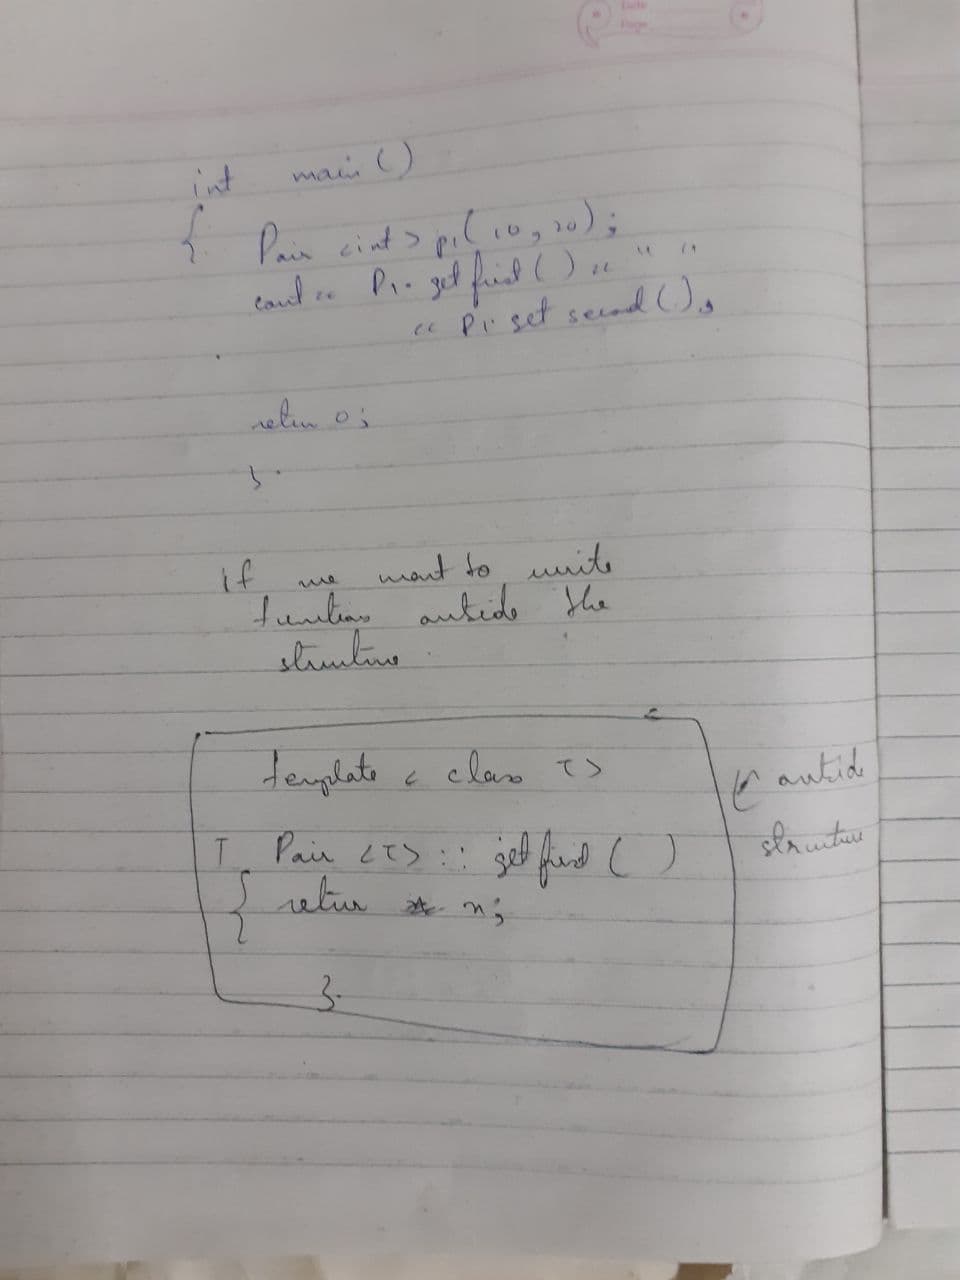 Date
Page
int main ()
{ Pair <int> p1(10, 20);
cout << P1. get first ( ) << " "
<< P1. get second ( );
return 0;
}.
if we want to write
functions outside the
structure.
template < class T>
T Pair <T> :: get first ( )
{ return x;
}.
outside
structure